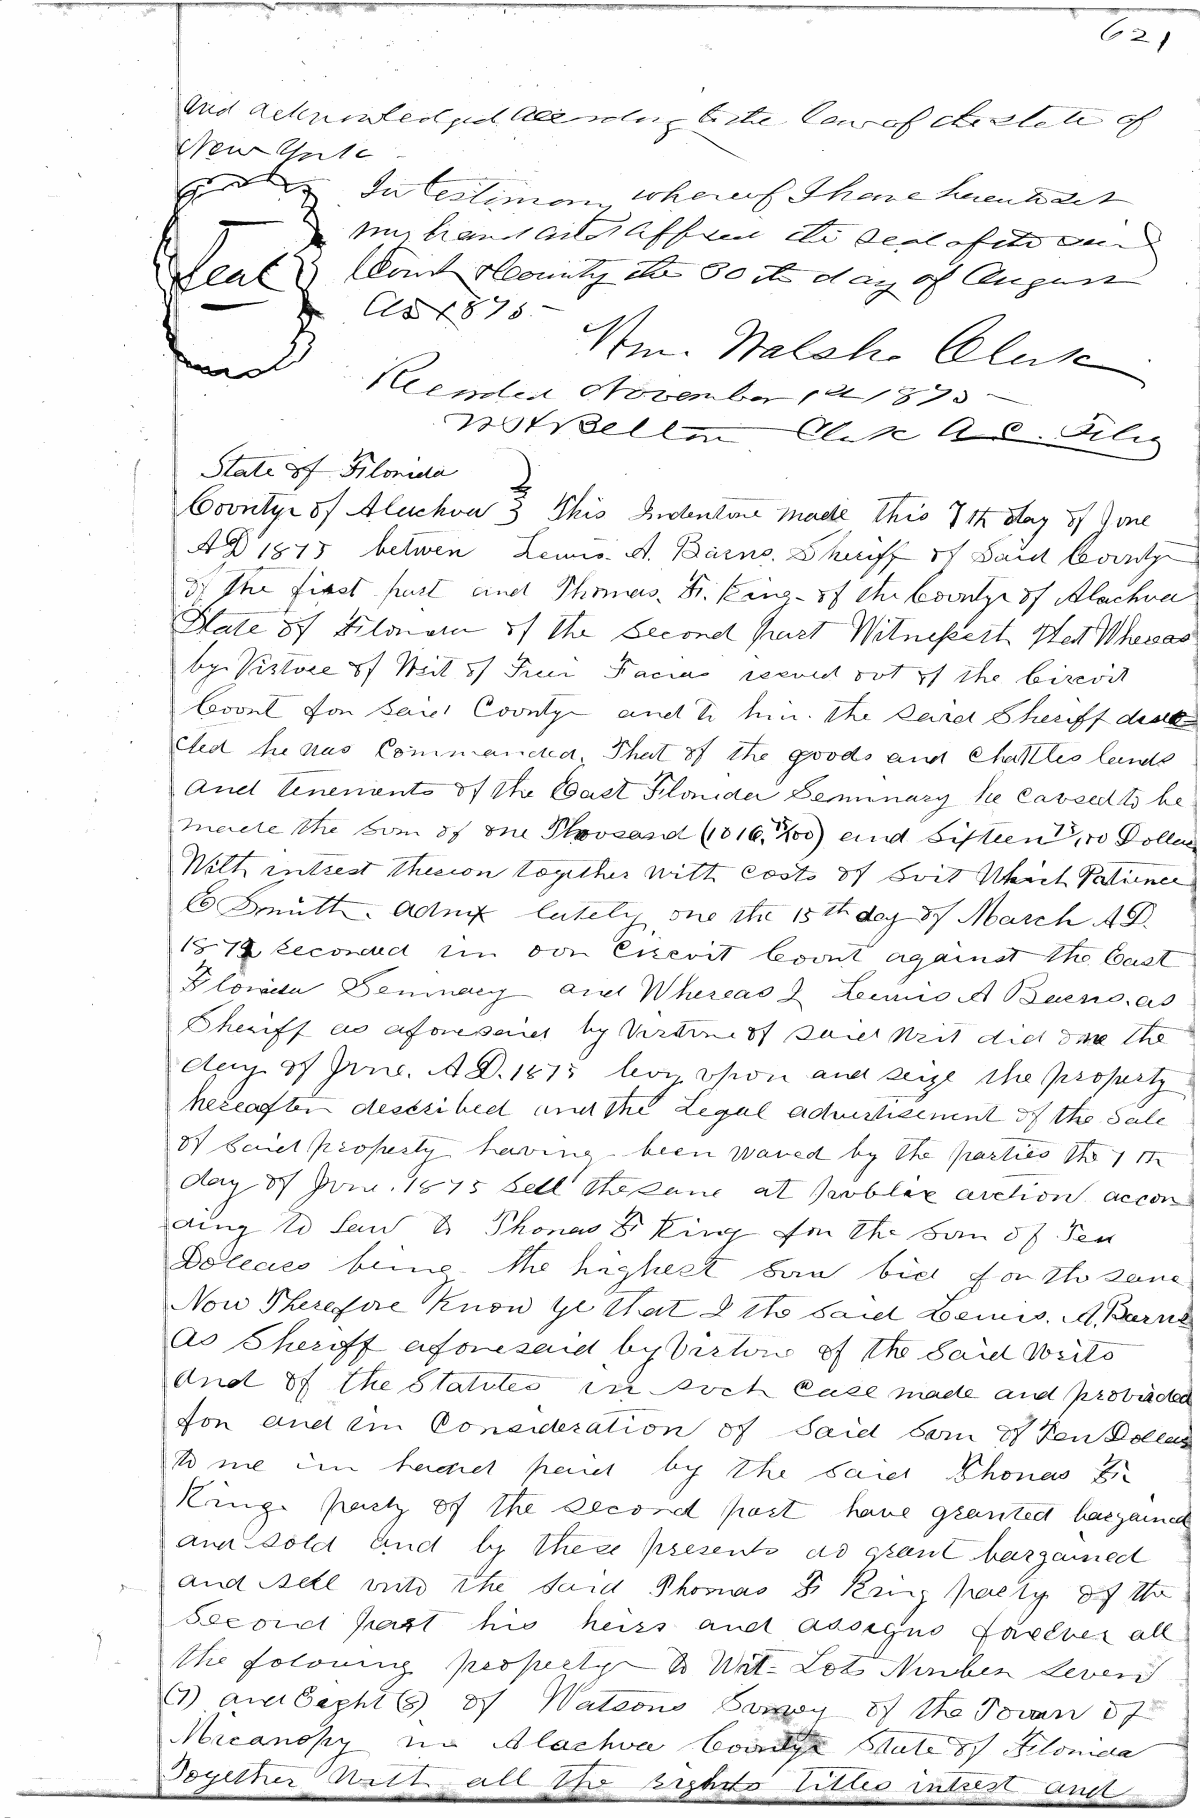 621
and acknowledged according to the law of the state of
New York
In testimony whereof I have hereunto set
my hand and affixed the seal of the said
Seal
Court & County the 30th day of August
AD 1875
Wm. Walsh Clerk
Recorded November 1st 1875
Clerk A C. Fila
State of Florida
County of Alachua } This Indenture made this 7th day of June
AD 1875 betwen Lewis. A. Barns. Sheriff of Said County
of the first part and Thomas. F. King of the County of Alachua
State of Florida of the Second part Witnesseth that Whereas
by Virtue of Writ of Fieri Facias issued out of the Circuit
Court for said County and to him the said Sheriff dire
cted he was Commanded. That of the goods and Chattles lands
and tenements of the East Florida Seminary he caused to be
made the sum of one Thousand (1016.75/100) and Sixteen 75/100 Dollars
With intrest thereon together with costs of suit Which Patience
E Smith. Admx lately one the 15th day of March AD.
187 recorded im our Circuit Court against the East
Florida Seminary and Whereas I Lewis A Barns. as
Sheriff as aforesaid by Virtue of said writ did one the
day of June. AD. 1875 levy upon and seize the property
hereafter described and the Legal advertisement of the Sale
of said property having been waved by the parties the 7th
day of June. 1875 Sell the same at publix auction accor
ding to law to Thomas F King for the sum of Ten
Dolears being the highest sum bid for the same
Now Therefore Know ye that I the Said Lewis. A. Barns
as Sheriff aforesaid by Virture of the Said Writs
and of the Statutes in such case made and provided
for and im Consideration of Said Sum of Ten Dollars
to me im hand paid by the said Thomas F.
King. party of the second part have granted bargained
and sold and by these presents do grant bargained
and sell unto the Said Thomas F King party of the
Second part his heirs and assigns forever all
the folowing property to Wit- Lots Number Seven
(7) and Eight (8) of Watsons Survey of the Town of
Micanopy in Alachua County State of Florida
Together With all the rights titles intrest and